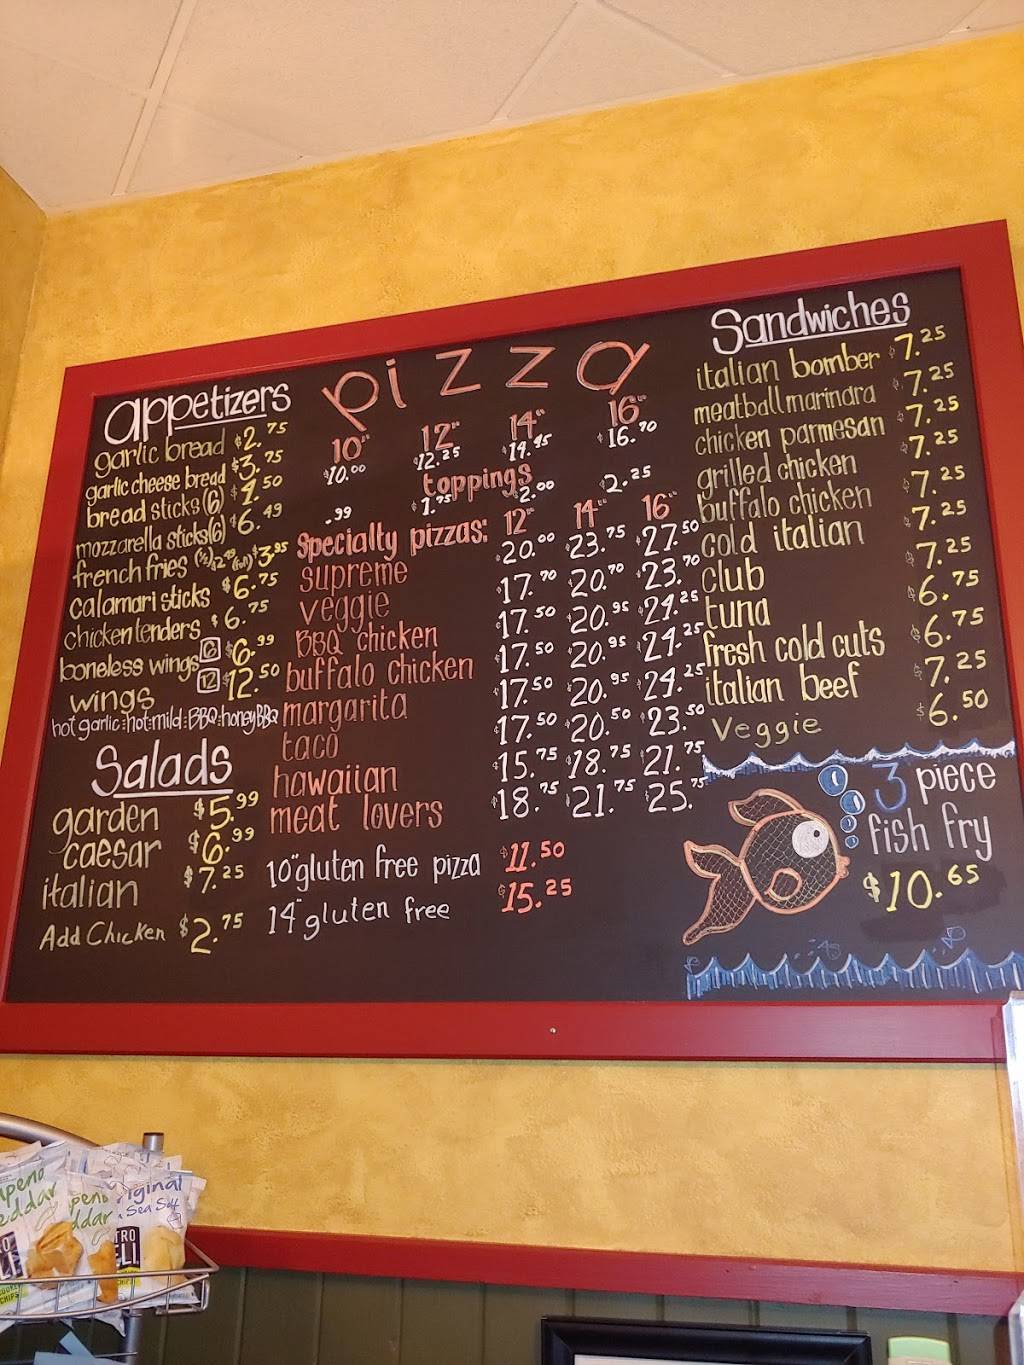 appetizers
garlic bread $2.75
garlic cheese bread $3.75
bread sticks (6) $4.50
mozzarella sticks (6) $6.49
french fries (½) $2.49 (full) $3.95
calamari sticks $6.75
chicken tenders $6.75
boneless wings 6 $6.99
wings 12 $12.50
hot garlic:hot:mild:BBQ:honey BBQ
Salads
garden $5.99
caesar $6.99
italian $7.25
Add Chicken $2.75
pizza
10" 12" 14" 16"
$10.00 $12.25 $14.45 $16.70
toppings
.99 $1.75 $2.00 $2.25
Specialty pizzas: 12" 14" 16"
supreme $20.00 $23.75 $27.50
veggie $17.70 $20.70 $23.70
BBQ chicken $17.50 $20.95 $24.25
buffalo chicken $17.50 $20.95 $24.25
margarita $17.50 $20.95 $24.25
taco $17.50 $20.50 $23.50
hawaiian $15.75 $18.75 $21.75
meat lovers $18.75 $21.75 $25.75
10" gluten free pizza $11.50
14" gluten free $15.25
Sandwiches
italian bomber $7.25
meatball marinara $7.25
chicken parmesan $7.25
grilled chicken $7.25
buffalo chicken $7.25
cold italian $7.25
club $7.25
tuna $6.75
fresh cold cuts $6.75
italian beef $7.25
Veggie $6.50
3 piece
fish fry
$10.65
original
Sea Salt